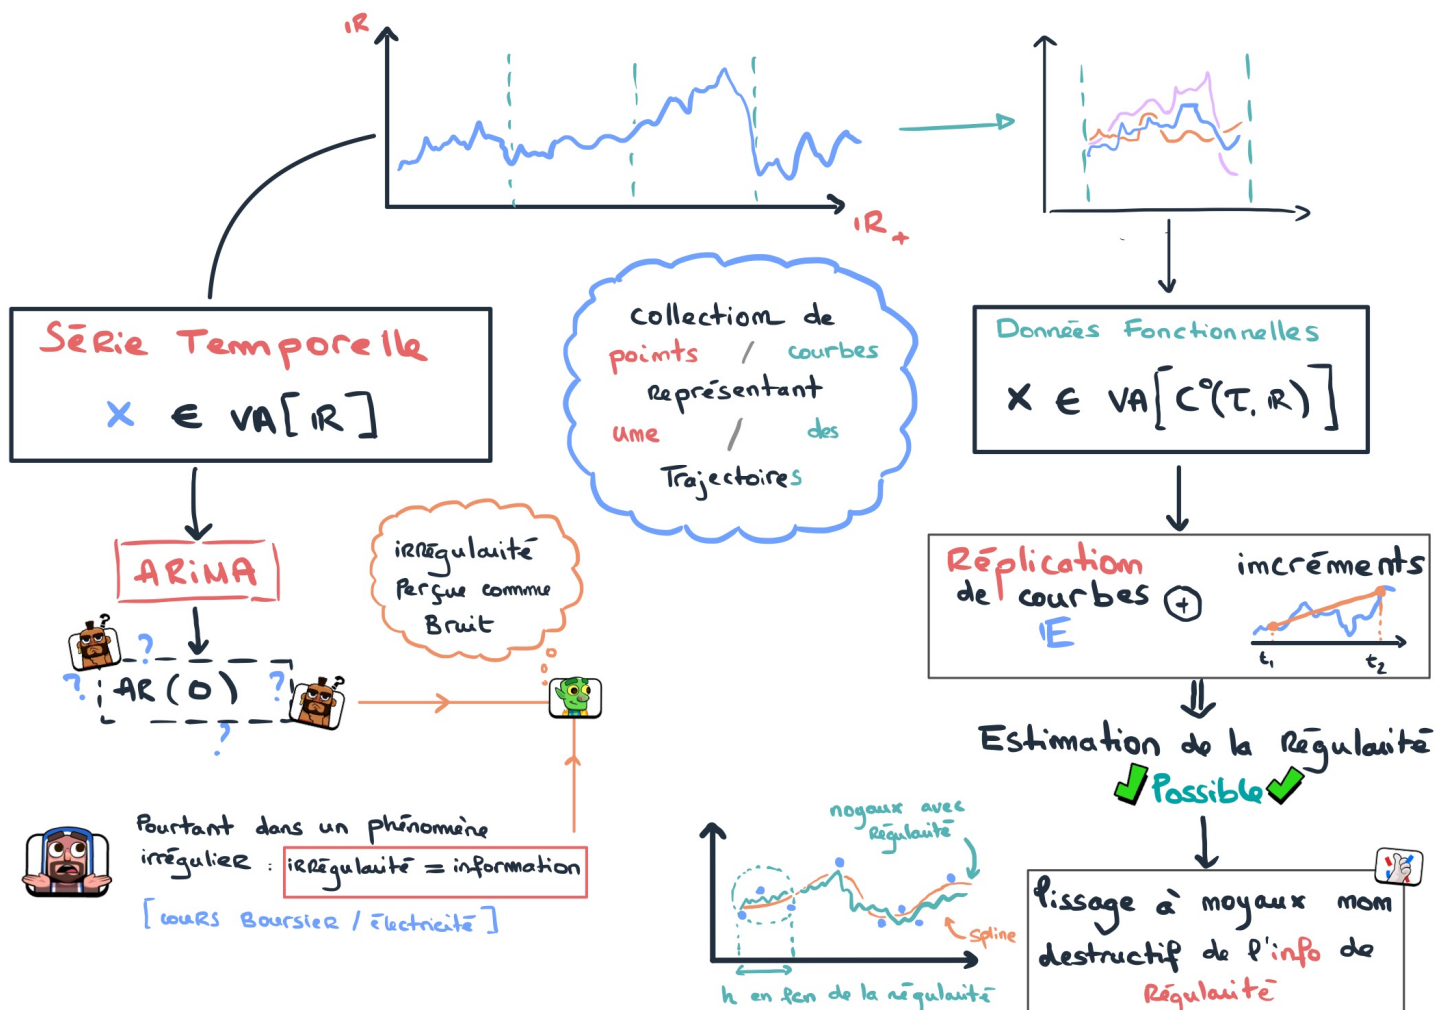 IR
IR+
Série Temporelle
X ∈ VA[IR]
collection de
points / courbes
Représentant
une / des
Trajectoires
Données Fonctionnelles
X ∈ VA[C°(T, IR)]
ARiMA
irrégularité
Perçue comme
Bruit
? ?
? AR(0) ?
?
?
Réplication
de courbes
IE
+
incréments
t₁ t₂
Estimation de la Régularité
Possible
Pourtant dans un phénomène
irrégulier : irrégularité = information
[cours Boursier / électricité]
noyaux avec
Régularité
spline
h en fcn de la régularité
lissage à noyaux non
destructif de l'info de
Régularité